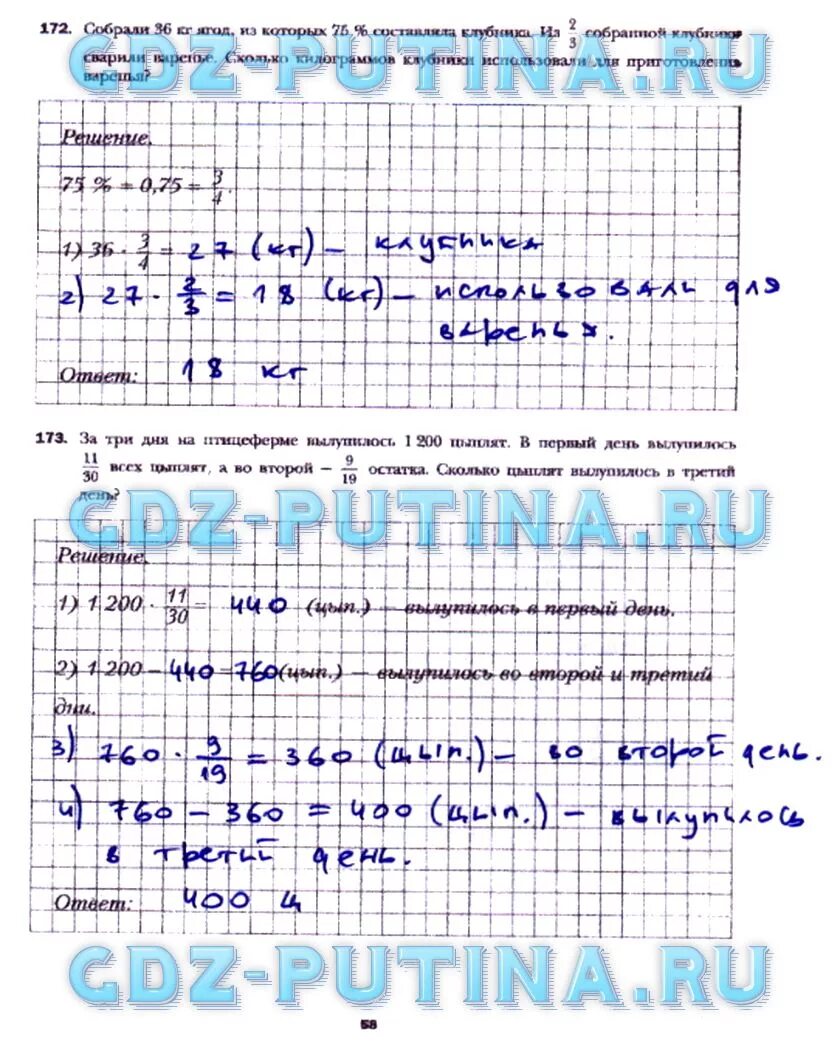 172. Собрали 36 кг ягод, из которых 75 % составляла клубника. Из 2/3 собранной клубники
сварили варенье. Сколько килограммов клубники использовали для приготовления
варенья?
GDZ-PUTINA.RU
Решение.
75 % = 0,75 = 3/4.
1) 36 · 3/4 = 27 (кг) – клубника
2) 27 · 2/3 = 18 (кг) – использовали для
варенья.
Ответ: 18 кг
173. За три дня на птицеферме вылупилось 1 200 цыплят. В первый день вылупилось
11/30 всех цыплят, а во второй – 9/19 остатка. Сколько цыплят вылупилось в третий
день?
GDZ-PUTINA.RU
Решение.
1) 1 200 · 11/30 = 440 (цып.) – вылупилось в первый день.
2) 1 200 – 440 = 760 (цып.) – вылупилось во второй и третий
дни.
3) 760 · 9/19 = 360 (цып.) – во второй день.
4) 760 – 360 = 400 (цып.) – вылупилось
в третий день.
Ответ: 400 ц
GDZ-PUTINA.RU
58